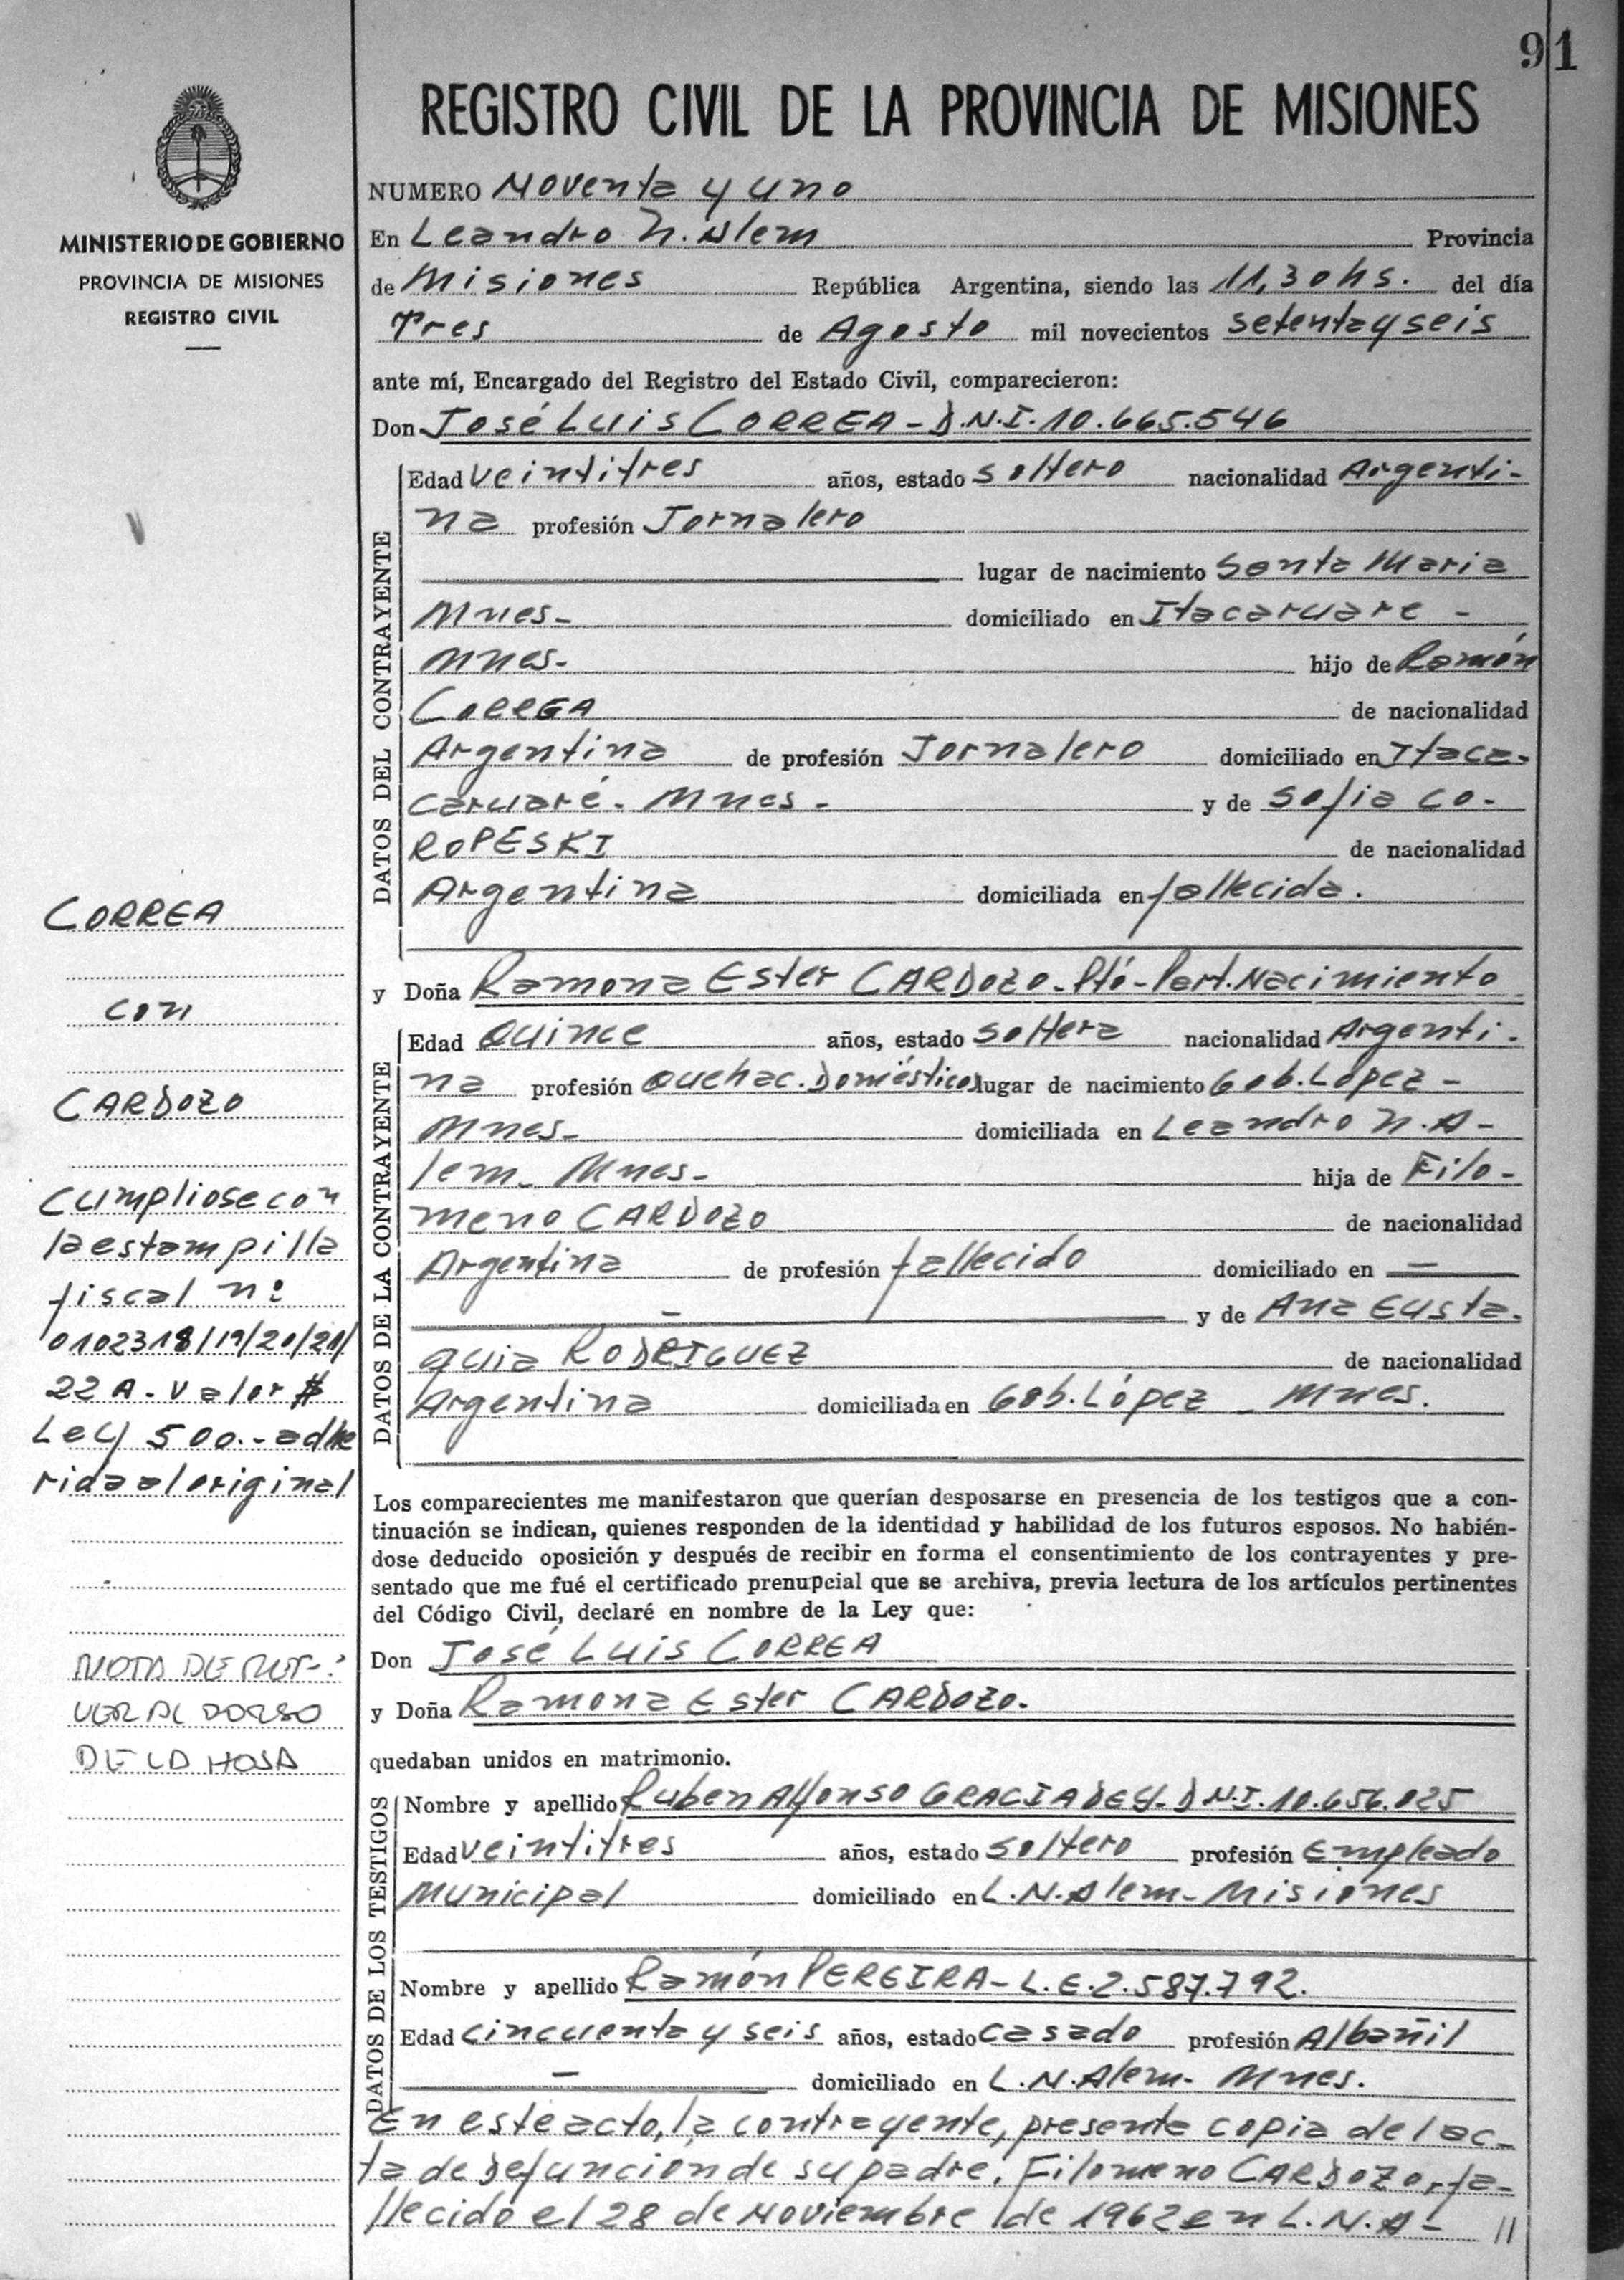 91
REGISTRO CIVIL DE LA PROVINCIA DE MISIONES
MINISTERIO DE GOBIERNO
PROVINCIA DE MISIONES
REGISTRO CIVIL
NUMERO Noventa y uno
En Leandro N. Alem Provincia
de Misiones República Argentina, siendo las 11,30hs. del día
Tres de Agosto mil novecientos setenta y seis
ante mí, Encargado del Registro del Estado Civil, comparecieron:
Don José Luis CORREA - D.N.I. 10.665.546
DATOS DEL CONTRAYENTE
Edad veintitres años, estado soltero nacionalidad Argenti-
na profesión Jornalero
lugar de nacimiento Santa Maria
Mnes- domiciliado en Itacaruare -
Mnes- hijo de Ramón
CORREA de nacionalidad
Argentina de profesión Jornalero domiciliado en Itaca-
caruaré - Mnes - y de Sofia CO-
ROPESKI de nacionalidad
Argentina domiciliada en fallecida.
y Doña Ramona Ester CARDOZO - Ptó - Part. Nacimiento
DATOS DE LA CONTRAYENTE
Edad Quince años, estado soltera nacionalidad Argenti-
na profesión Quehac. Domésticos lugar de nacimiento Gob. López -
Mnes- domiciliada en Leandro N. A-
lem - Mnes- hija de Filo-
meno CARDOZO de nacionalidad
Argentina de profesión fallecido domiciliado en —
— y de Ana Eusta-
quia RODRIGUEZ de nacionalidad
Argentina domiciliada en Gob. López - Mnes.
Los comparecientes me manifestaron que querían desposarse en presencia de los testigos que a con-
tinuación se indican, quienes responden de la identidad y habilidad de los futuros esposos. No habién-
dose deducido oposición y después de recibir en forma el consentimiento de los contrayentes y pre-
sentado que me fué el certificado prenupcial que se archiva, previa lectura de los artículos pertinentes
del Código Civil, declaré en nombre de la Ley que:
Don José Luis CORREA
y Doña Ramona Ester CARDOZO.
quedaban unidos en matrimonio.
DATOS DE LOS TESTIGOS
Nombre y apellido Ruben Alfonso GRACIADEY - D.N.I. 10.656.025
Edad veintitres años, estado soltero profesión Empleado
Municipal domiciliado en L.N. Alem - Misiones
Nombre y apellido Ramón PEREIRA - L.E. 2.587.792.
Edad cincuenta y seis años, estado casado profesión Albañil
— domiciliado en L.N. Alem - Mnes.
En este acto, la contrayente, presenta copia del ac-
ta de Defunción de su padre, Filomeno CARDOZO, fa-
llecido el 28 de Noviembre de 1962 en L.N. A- //
CORREA
con
CARDOZO
Cumpliose con
la estampilla
fiscal nº
0102318/19/20/21/
22 A - Valor $
Ley 500.- adhe
rida al original
NOTA DE REF-:
VER AL DORSO
DE LA HOJA